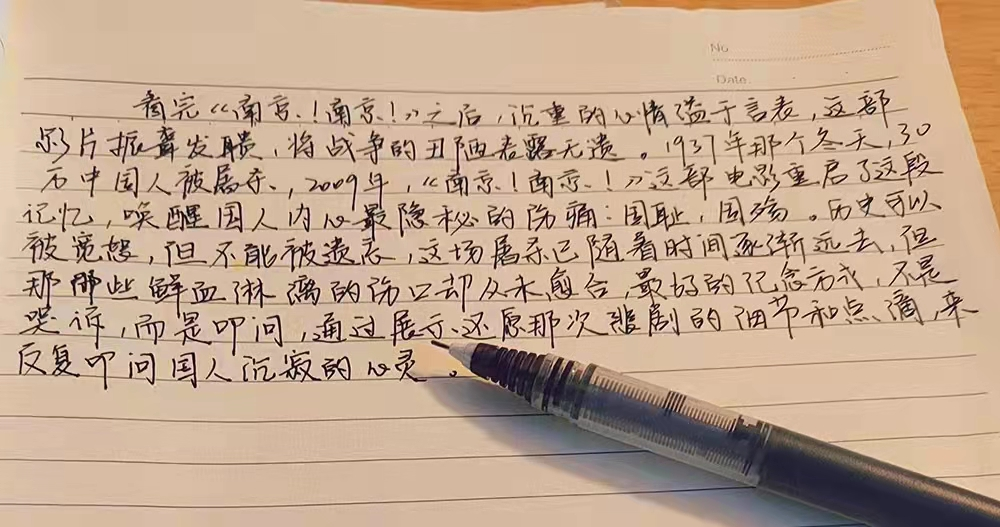 No
Date
看完《南京！南京！》之后，沉重的心情溢于言表，这部
影片振聋发聩，将战争的丑陋表露无遗。1937年那个冬天，30
万中国人被屠杀，2009年，《南京！南京！》这部电影重启了这段
记忆，唤醒国人内心最隐秘的伤痛：国耻，国殇。历史可以
被宽恕，但不能被遗忘，这场屠杀已随着时间逐渐远去，但
那那些鲜血淋漓的伤口却从未愈合，最好的纪念方式，不是
哭诉，而是叩问，通过展示、还愿那次悲剧的细节和点滴，来
反复叩问国人沉寂的心灵。